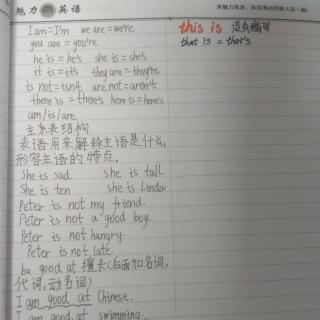 魅力 英语
来魅力英语，和优秀的同龄人在一起!
I am = I'm we are = we're
you are = you're
he is = he's she is = she's
it is = it's they are = they're
is not = isn't are not = aren't
there is = there's here is = here's
am / is / are
主系表结构
表语用来解释主语是什么,
形容主语的特点.
She is sad She is tall
She is ten she is Linda
Peter is not my friend.
Peter is not a good boy.
Peter is not hungry.
Peter is not late.
be good at 擅长(后面加名词,
代词,动名词)
I am good at Chinese.
I am good at swimming..
this is 没有缩写
that is = that's